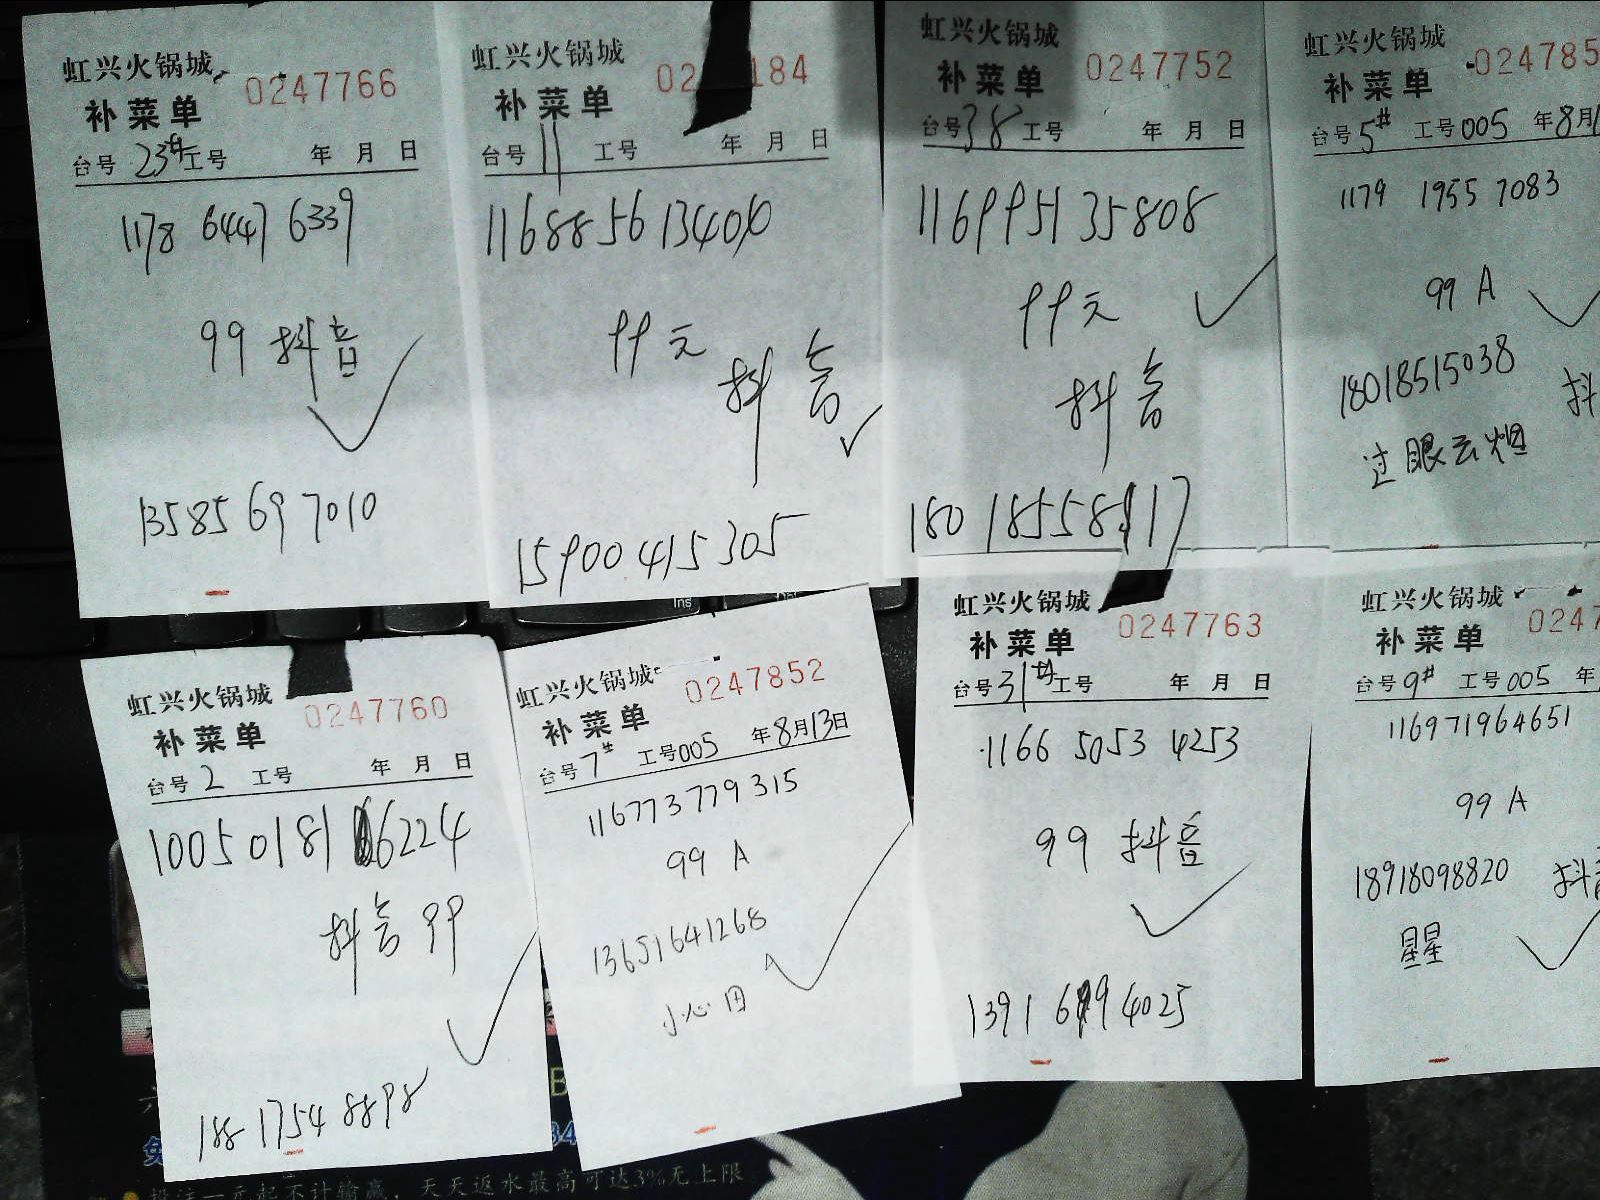 虹兴火锅城
0247766
补菜单
台号 23# 工号 年 月 日
1178 6447 6339
99 抖音
13585697010
虹兴火锅城
184
补菜单
台号 11 工号 年 月 日
99元
抖音
15900415305
虹兴火锅城
0247752
补菜单
台号 38 工号 年 月 日
116995135808
99元
抖音
虹兴火锅城
024785
补菜单
台号 5# 工号 005 年 8月1
1179 1955 7083
99 A
18018515038 抖
过眼云烟
虹兴火锅城
0247760
补菜单
台号 2 工号 年 月 日
10050181 6224
抖音 99
188 1754 8898
虹兴火锅城
0247852
补菜单
台号 7# 工号 005 年 8月13日
116773779315
99 A
13651641268
小心田
虹兴火锅城
0247763
补菜单
台号 31# 工号 年 月 日
1166 5053 4253
99 抖音
虹兴火锅城
0247
补菜单
台号 9# 工号 005 年
116971964651
99 A
18918098820 抖音
星星
Ins
投注一元起不计输赢，天天返水最高可达3%无上限